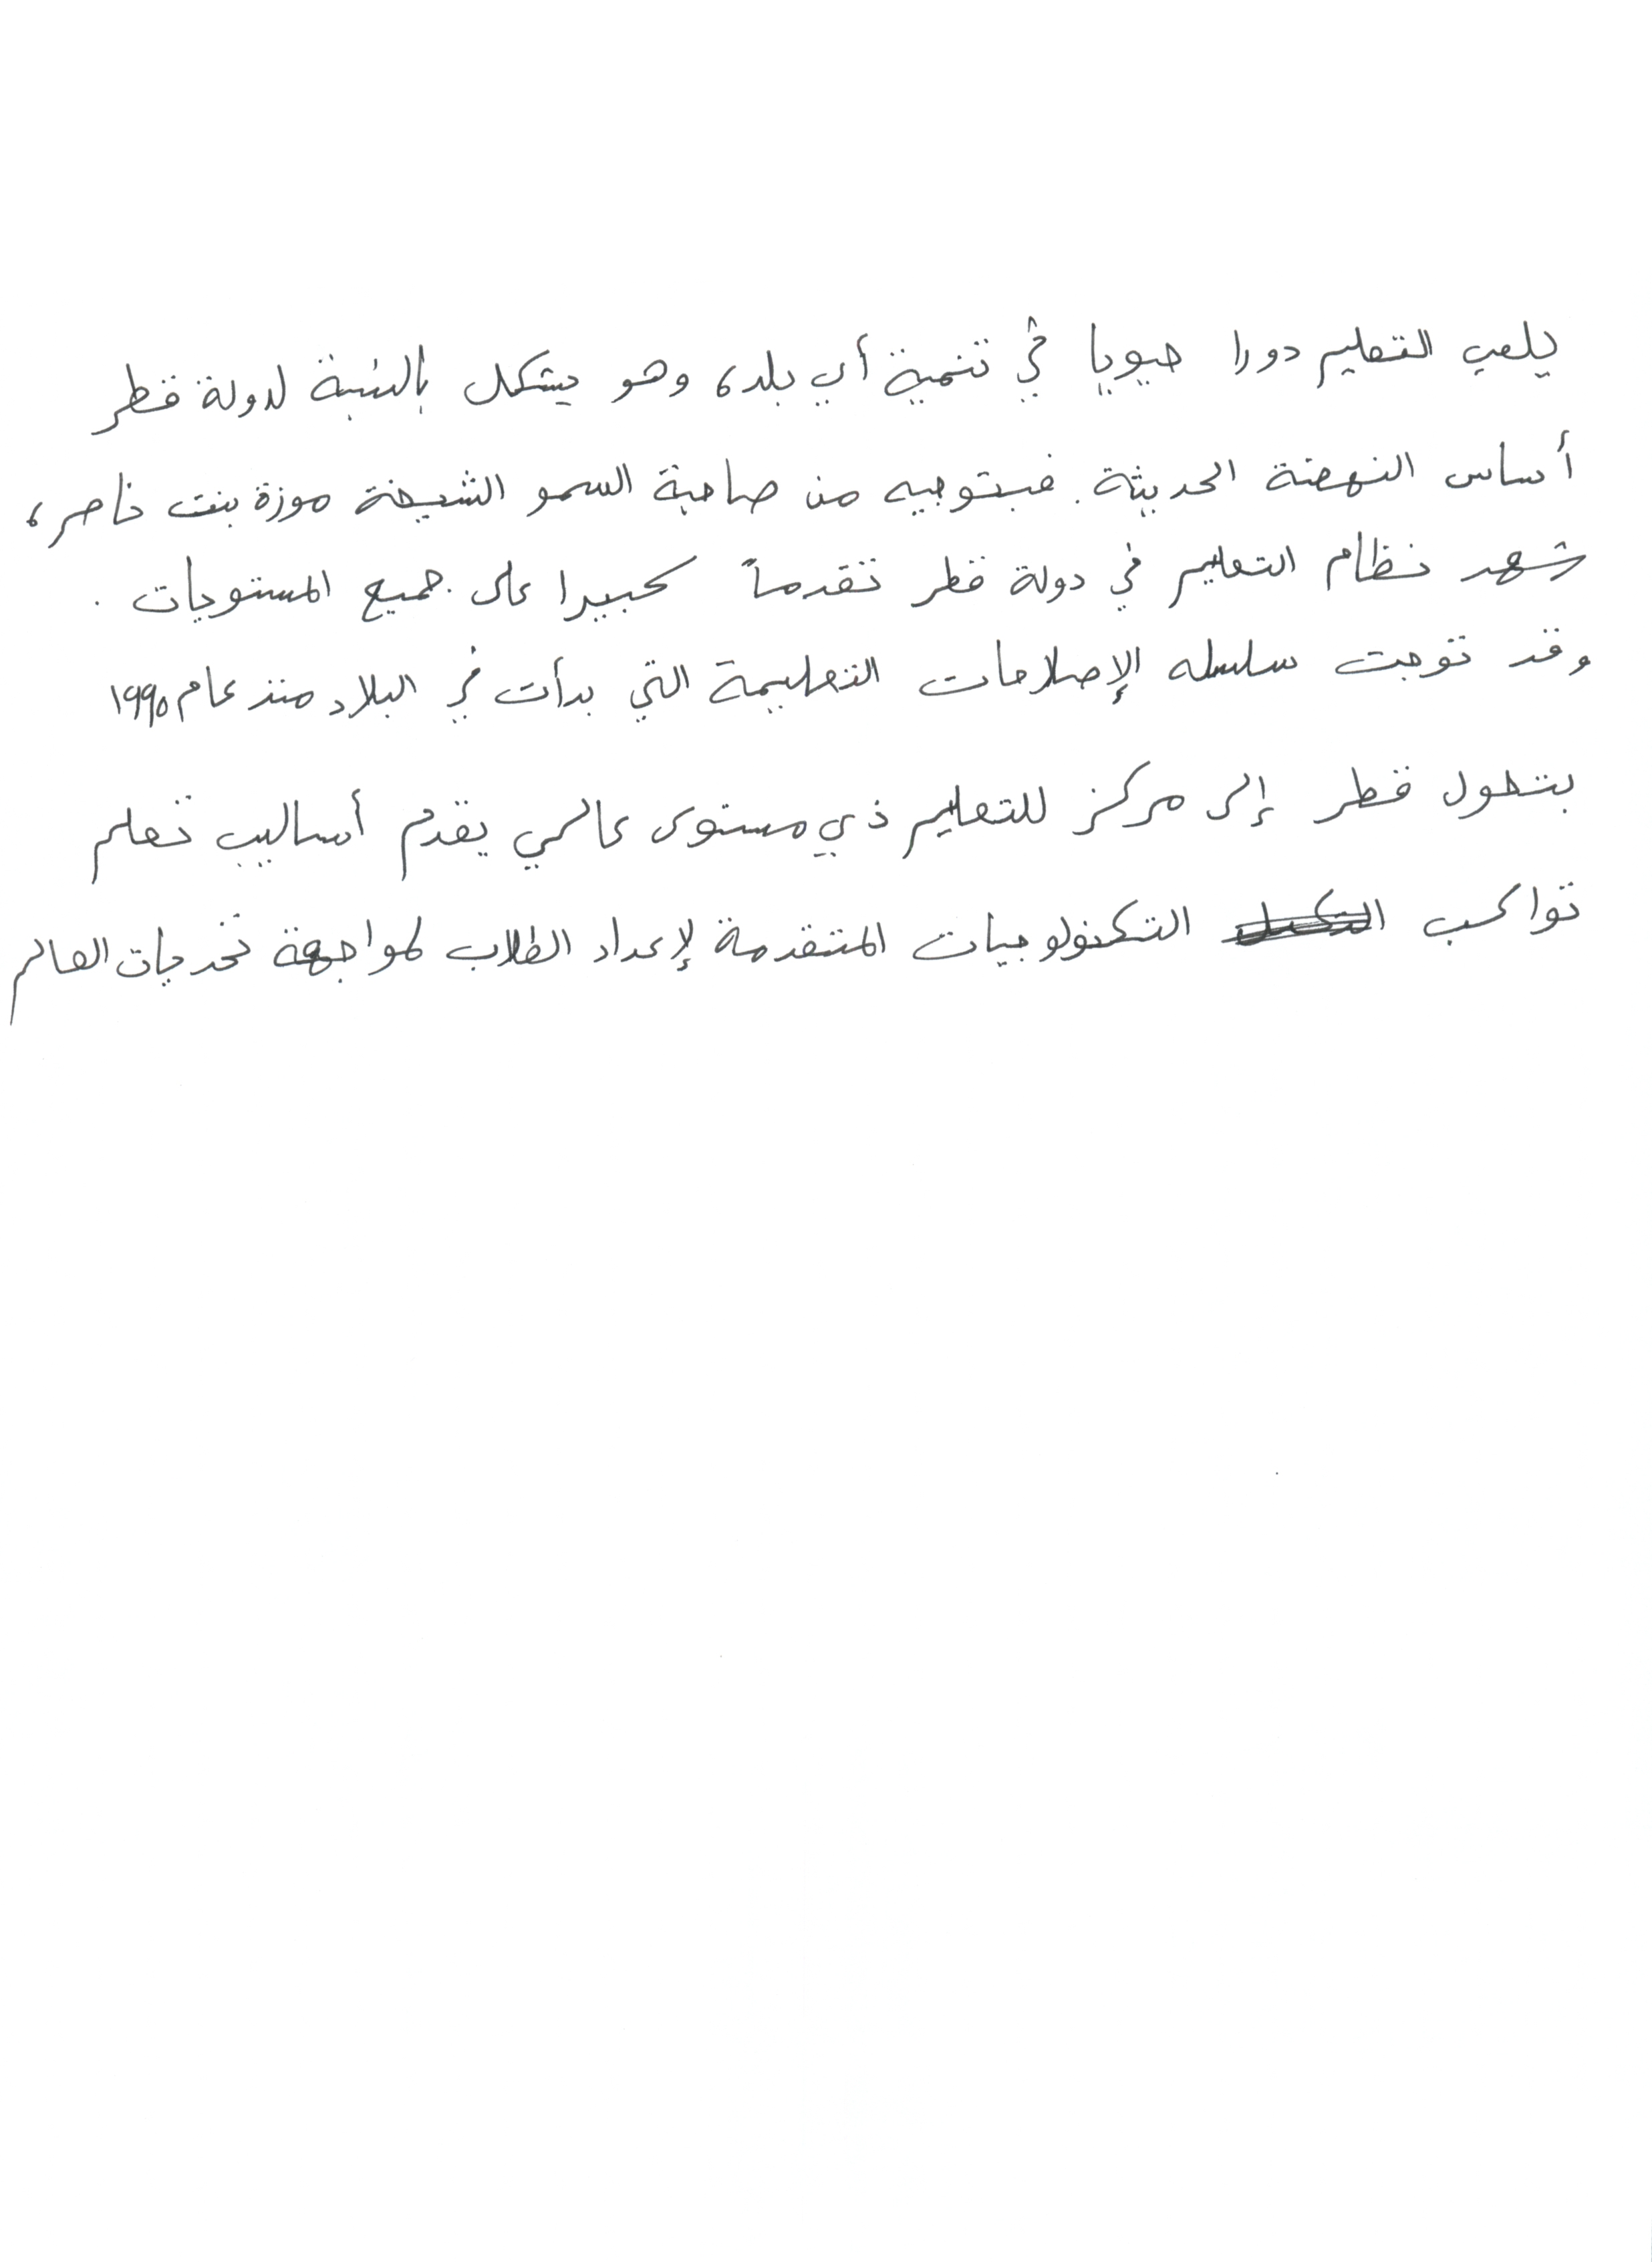 يلعب التعليم دورا حيويا في تنمية أي بلد، وهو يشكل بالنسبة لدولة قطر
أساس النهضة الحديثة. فبتوجيه من صاحبة السمو الشيخة موزة بنت ناصر،
شهد نظام التعليم في دولة قطر تقدماً كبيرا على جميع المستويات .
وقد توجت سلسله الإصلاحات التعليمية التي بدأت في البلاد منذ عام ١٩٩٥
بتحول قطر إلى مركز للتعليم ذي مستوى عالمي يقدم أساليب تعلم
تواكب التكنولوجيات المتقدمة لإعداد الطلاب لمواجهة تحديات العالم